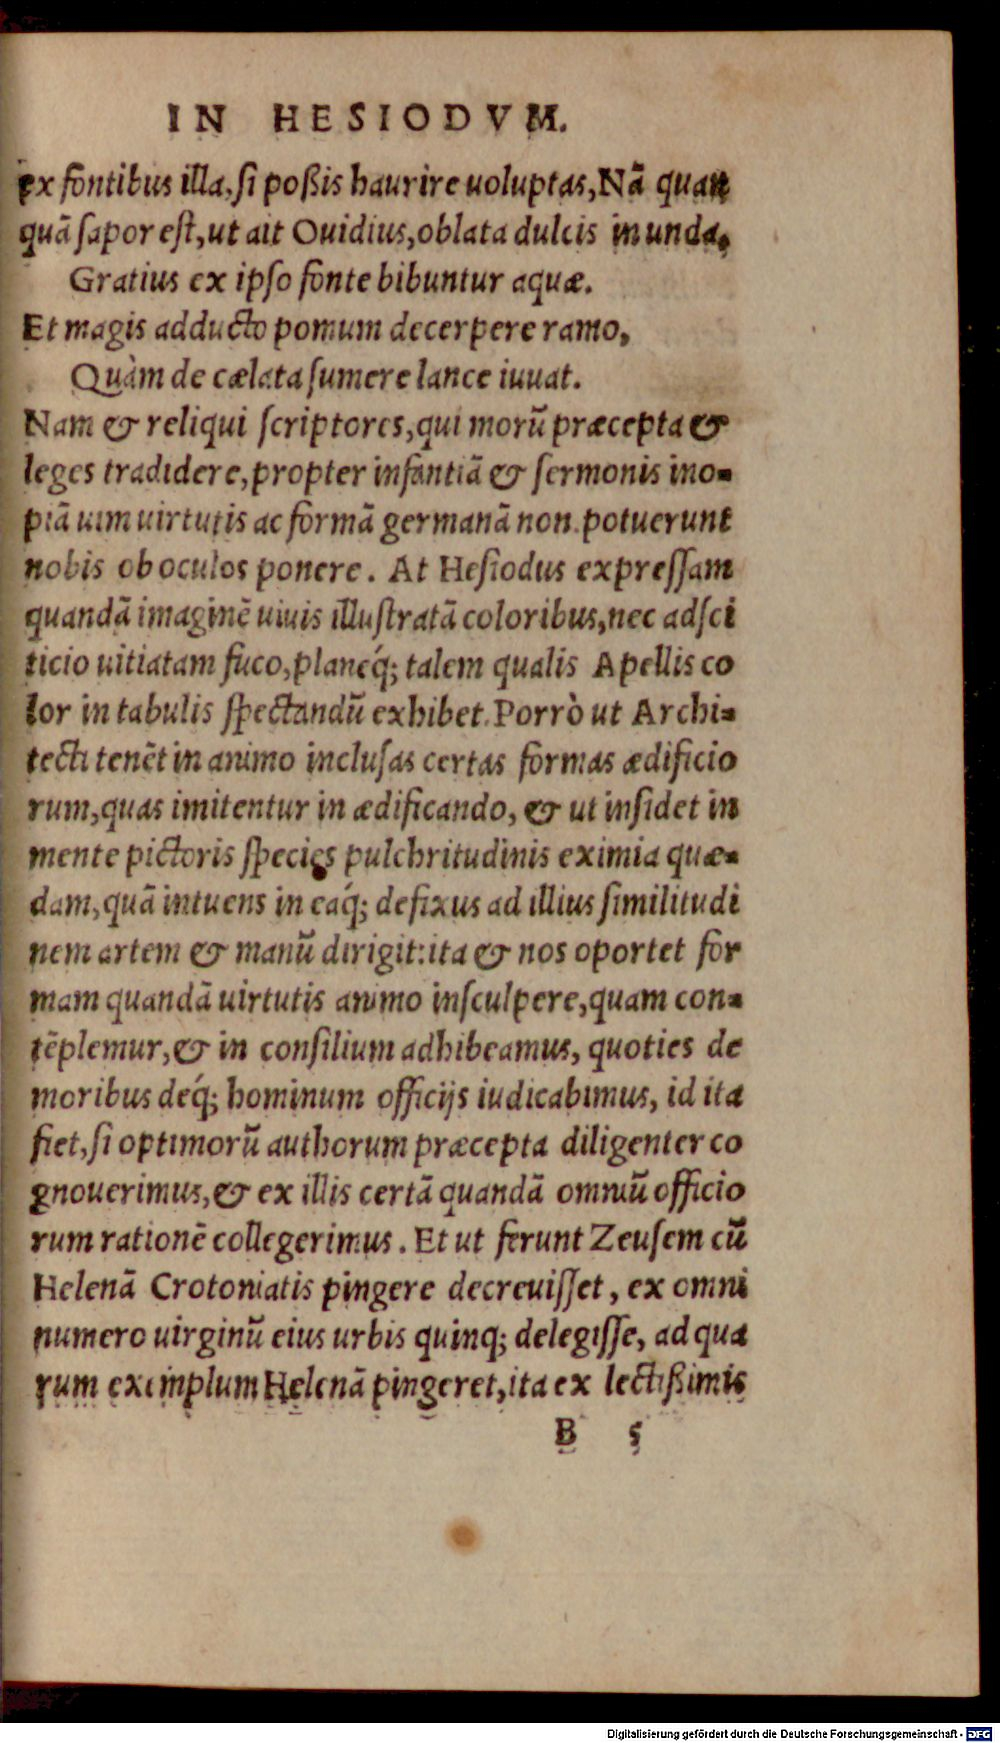 IN HESIODVM.
ex fontibus illa, si poßis haurire uoluptas, Nā quan
quā sapor est, ut ait Ouidius, oblata dulcis in unda,
Gratius ex ipso fonte bibuntur aquæ.
Et magis adducto pomum decerpere ramo,
Quàm de cælata sumere lance iuuat.
Nam & reliqui scriptores, qui morū præcepta &
leges tradidere, propter infantiā & sermonis ino-
piā uim uirtutis ac formā germanā non potuerunt
nobis ob oculos ponere. At Hesiodus expressam
quandā imaginē uiuis illustratā coloribus, nec adsci
ticio uitiatam fuco, planeq́; talem qualis Apellis co
lor in tabulis spectandū exhibet. Porrò ut Archi-
tecti tenēt in animo inclusas certas formas ædificio
rum, quas imitentur in ædificando, & ut insidet in
mente pictoris species pulchritudinis eximia quæ-
dam, quā intuens in eaq́; defixus ad illius similitudi
nem artem & manū dirigit: ita & nos oportet for
mam quandā uirtutis animo insculpere, quam con-
tēplemur, & in consilium adhibeamus, quoties de
moribus deq́; hominum officijs iudicabimus, id ita
fiet, si optimorū authorum præcepta diligenter co
gnouerimus, & ex illis certā quandā omniū officio
rum rationē collegerimus. Et ut ferunt Zeusem cū
Helenā Crotoniatis pingere decreuisset, ex omni
numero uirginū eius urbis quinq; delegisse, ad qua
rum exemplum Helenā pingeret, ita ex lectißimis
B 5
Digitalisierung gefördert durch die Deutsche Forschungsgemeinschaft - DFG